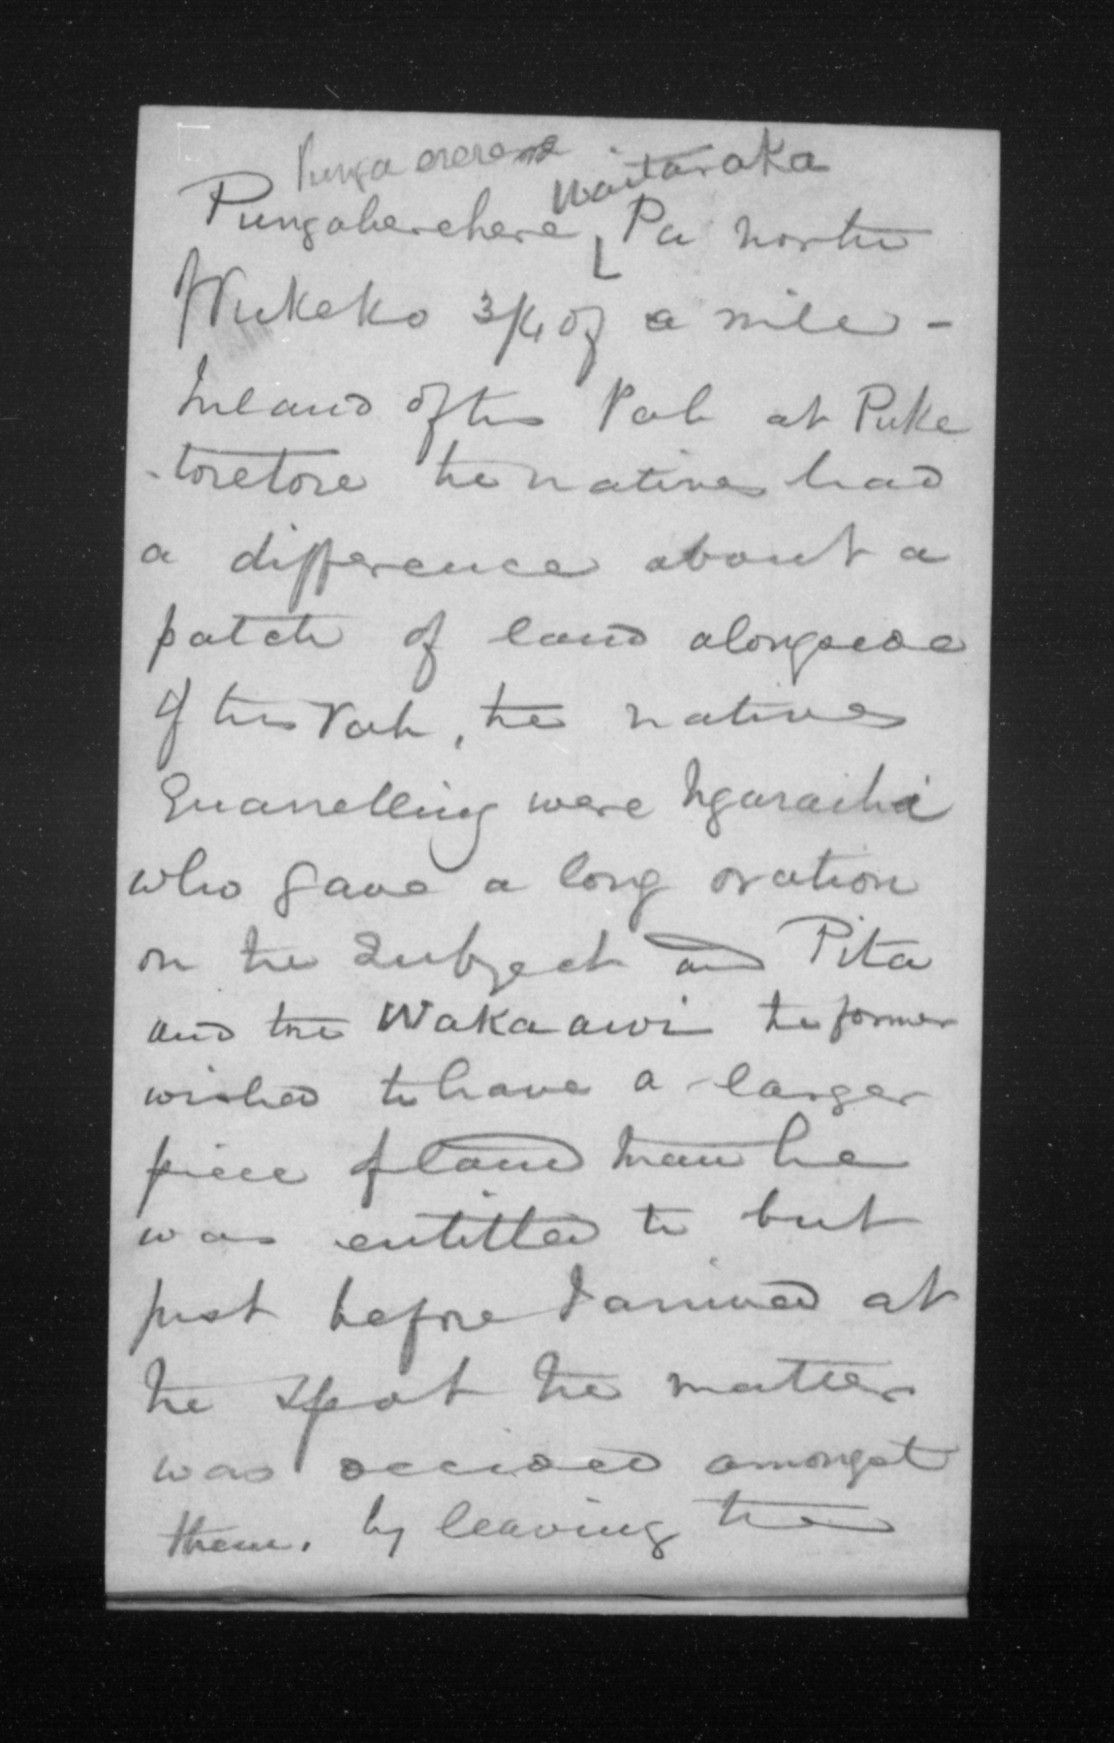 Punga erere
Waitaraka
Pungaherehere, Pa north
of Wukeko 3/4 of a mile -
Inland of the Pah at Puke
-toretore the natives had
a difference about a
patch of land alongside
of this Pah, the natives
Quarrelling were Ngaraihi
who gave a long oration
on the Subject and Pita
and the Wakaawi the former
wished to have a larger
piece of land than he
was entitled to but
just before I arrived at
the spot the matter
was decided amongst
them. by leaving the